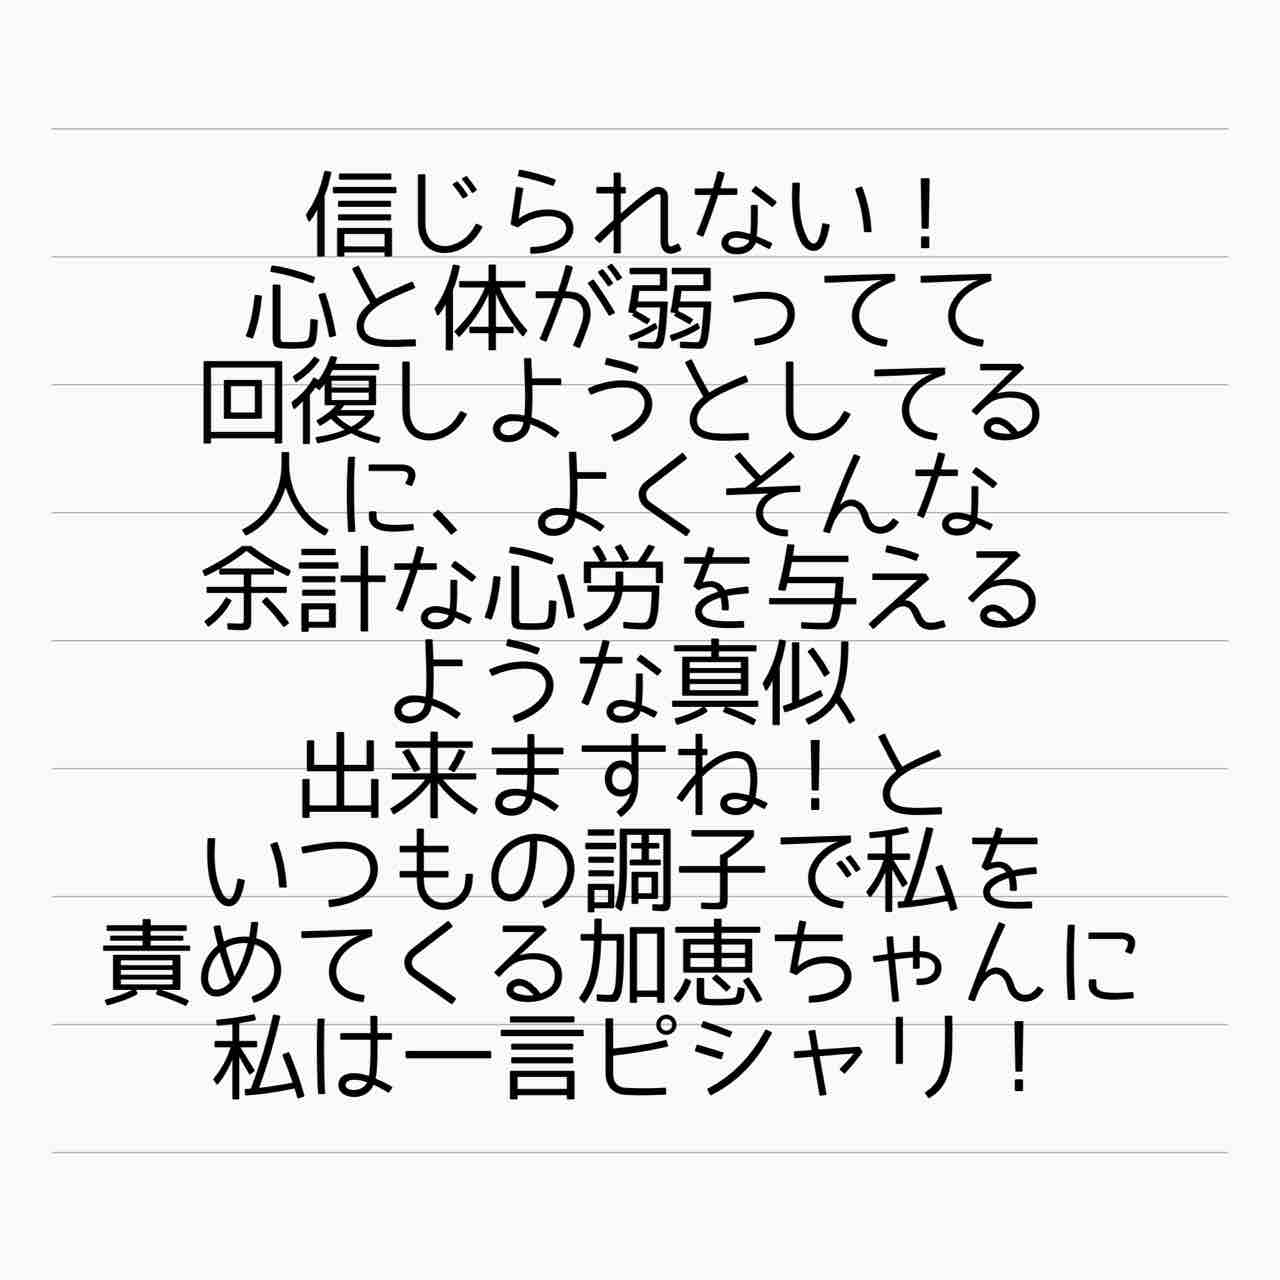 信じられない！
心と体が弱ってて
回復しようとしてる
人に、よくそんな
余計な心労を与える
ような真似
出来ますね！と
いつもの調子で私を
責めてくる加恵ちゃんに
私は一言ピシャリ！